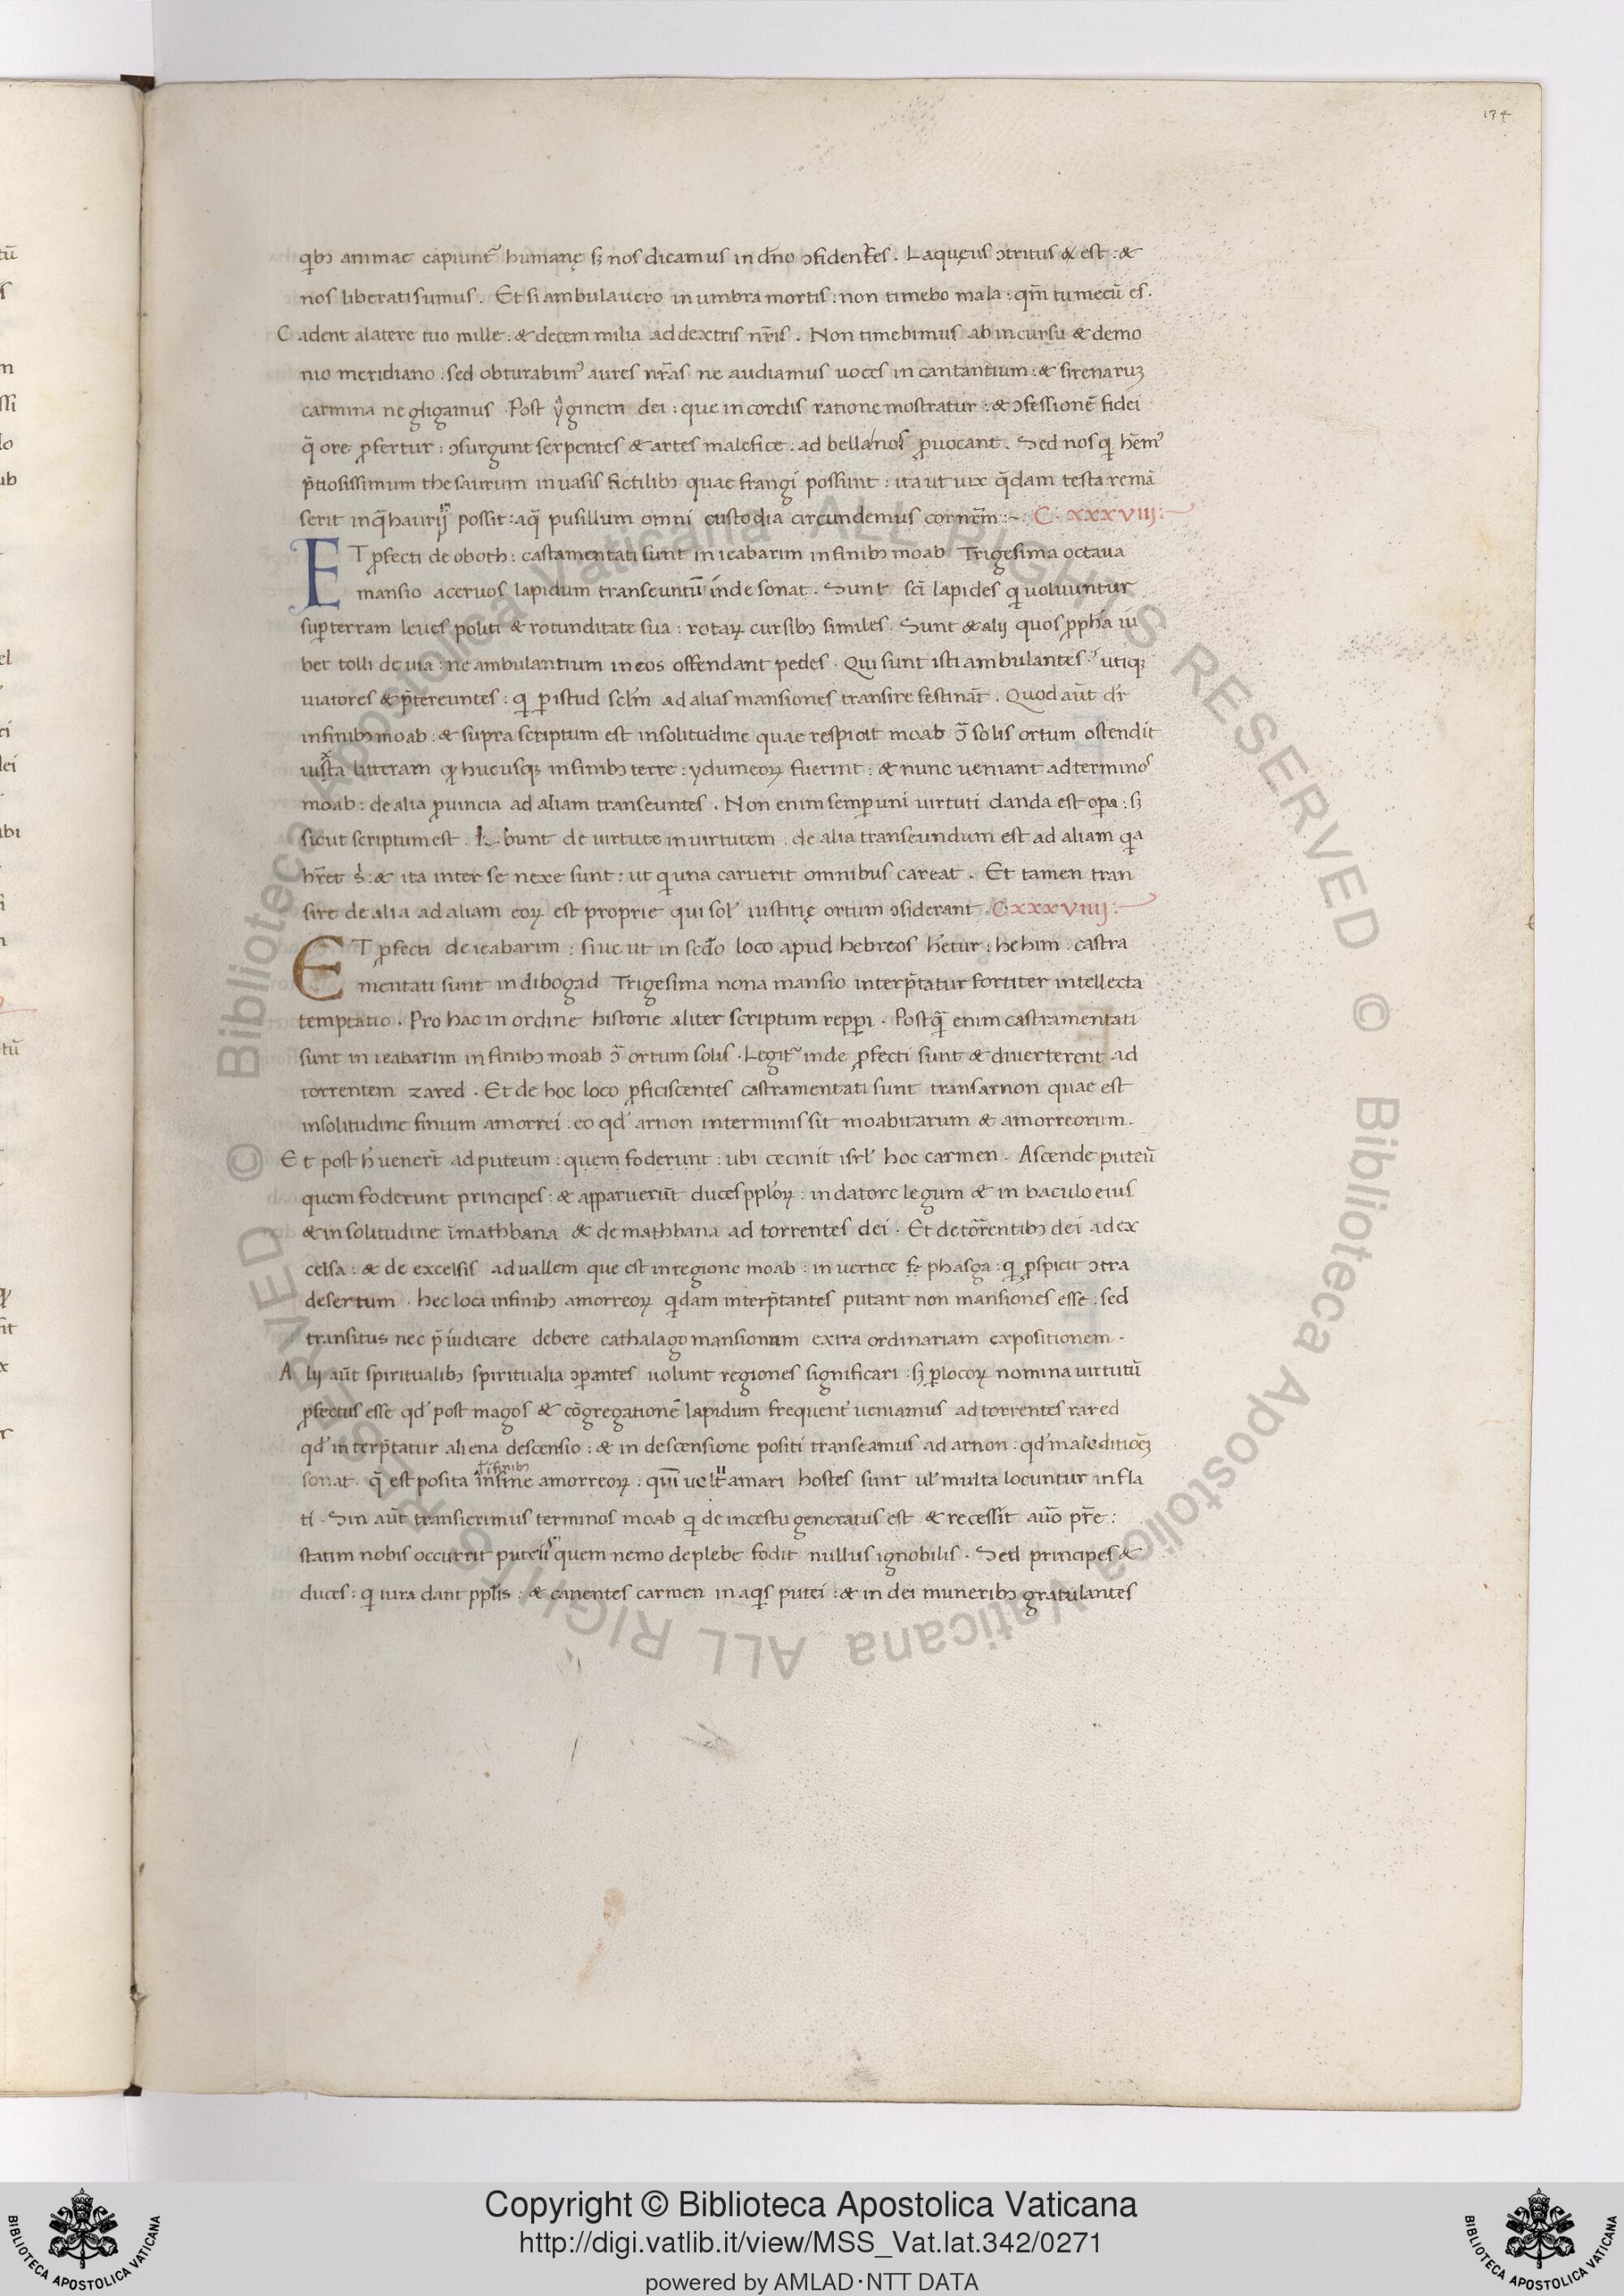 134
qͥbꝫ animae capiunt᷑ humanę sꝫ nos dicamus in dño ↄfidentes . Laquęus ↄtritus est : &
nos liberati sumus . Et si ambulauero in umbra mortis : non timebo mala : qm̃ tu mecũ es .
Cadent alatere tuo mille : & decem milia ad dextris nr̃is . Non timebimus ab incursu & demo
nio meridiano . sed obturabimꝰ aures nr̃as ne audiamus uoces in cantantium : & sirenaruꝫ
carmina negligamus . Post ymaginem dei : que in cordis ratione mostratur : & ↄfessionẽ fidei
q̃ ore ꝓfertur : ↄsurgunt serpentes & artes malefice : ad bella nos ꝓuocant . Sed nos qͥ hẽmꝰ
p̃tiosissimum thesaurum in uasis fictilibꝫ quae frangi possunt : ita ut uix q̃dam testa remã
serit in q̃ haurij possit : aq̃ pusillum omni custodia circundemus cor nr̃m :~ C. xxxviij :
ET ꝓfecti de oboth : castamentati sunt in ieabarim in finibꝫ moab Trigesima octaua
mansio aceruos lapidum transeuntũ inde sonat . Sunt sc̃i lapides qͥ uoluuntur
suꝑ terram leues politi & rotunditate sua : rotaꝝ cursibꝫ similes . Sunt & alij quos ꝓpha iu
bet tolli de uia : ne ambulantium in eos offendant pedes . Qui sunt isti ambulantes ? utiqꝫ
uiatores & p̃tereuntes : qͥ ꝑ istud sclm̃ ad alias mansiones transire festinãt . Quod aũt dr̃
in finibꝫ moab : & supra scriptum est in solitudine quae respicit moab ↄ̃ solis ortum ostendit
iuxta litteram ꝙ hucusqꝫ in finibꝫ terre : ydumeoꝝ fuerint : & nunc ueniant ad terminos
moab : de alia ꝓuincia ad aliam transeuntes . Non enim semꝑ uni uirtuti danda est oꝑa : sꝫ
sicut scriptum est . bunt de uirtute in uirtutem . de alia transeundum est ad aliam qͥa
hr̃et s : & ita inter se nexe sunt : ut qͥ una caruerit omnibus careat . Et tamen tran
sire de alia ad aliam eoꝝ est proprie qui sol’ iustitię ortum ↄsiderant . C xxxviiij :
ET ꝓfecti de ieabarim : siue ut in scd̃o loco apud hebreos hetur : hehim : castra
mentati sunt in dibogad Trigesima nona mansio interp̃tatur fortiter intellecta
temptatio . Pro hac in ordine historie aliter scriptum repꝑi . Postq̃ enim castramentati
sunt in ieabarim in finibꝫ moab ↄ̃ ortum solis . Legit᷑ inde ꝓfecti sunt & diuerterent ad
torrentem zared . Et de hoc loco ꝓficiscentes castramentati sunt trans arnon quae est
in solitudine finium amorrei . eo qd’ arnon in terminis sit moabitarum & amorreorum .
Et post h’ uener̃t ad puteum : quem foderunt : ubi cecinit isrl’ hoc carmen . Ascende puteũ
quem foderunt principes : & apparuerũt duces ppl’oꝝ : in datore legum & in baculo eius
& in solitudine ĩ mathbana & de mathbana ad torrentes dei . Et de torrentibꝫ dei ad ex
celsa : & de excelsis ad uallem que est in regione moab : in uertice phasga : qͥ ꝓspicit ↄtra
desertum . hec loca in finibꝫ amorreoꝝ qͥdam interp̃tantes putant non mansiones esse : sed
transitus nec p̃iudicare debere cathalago mansionum extra ordinariam expositionem .
Alij aũt spiritualibꝫ spiritualia ↄꝑantes uolunt regiones significari : sꝫ ꝑ locoꝝ nomina uirtutũ
ꝓfectus esse qd’ post magos & cõgregationẽ lapidum frequent’ ueniamus ad torrentes rared
qd’ interp̃tatur aliena descensio : & in descensione positi transeamus ad arnon : qd’ maleditiõeꝫ
sonat . q̃ est posita in fine amorreoꝝ : qui uel amari hostes sunt ul’ multa locuntur infla
ti . Sin aũt transierimus terminos moab qͥ de incestu generatus est & recessit aũo pr̃e :
statim nobis occurrit puteus quem nemo de plebe fodit nullus ignobilis . Sed principes &
duces : qͥ iura dant ppl’is : & canentes carmen in aqͥs putei : & in dei muneribꝫ gratulantes
Copyright © Biblioteca Apostolica Vaticana
http://digi.vatlib.it/view/MSS_Vat.lat.342/0271
powered by AMLAD·NTT DATA